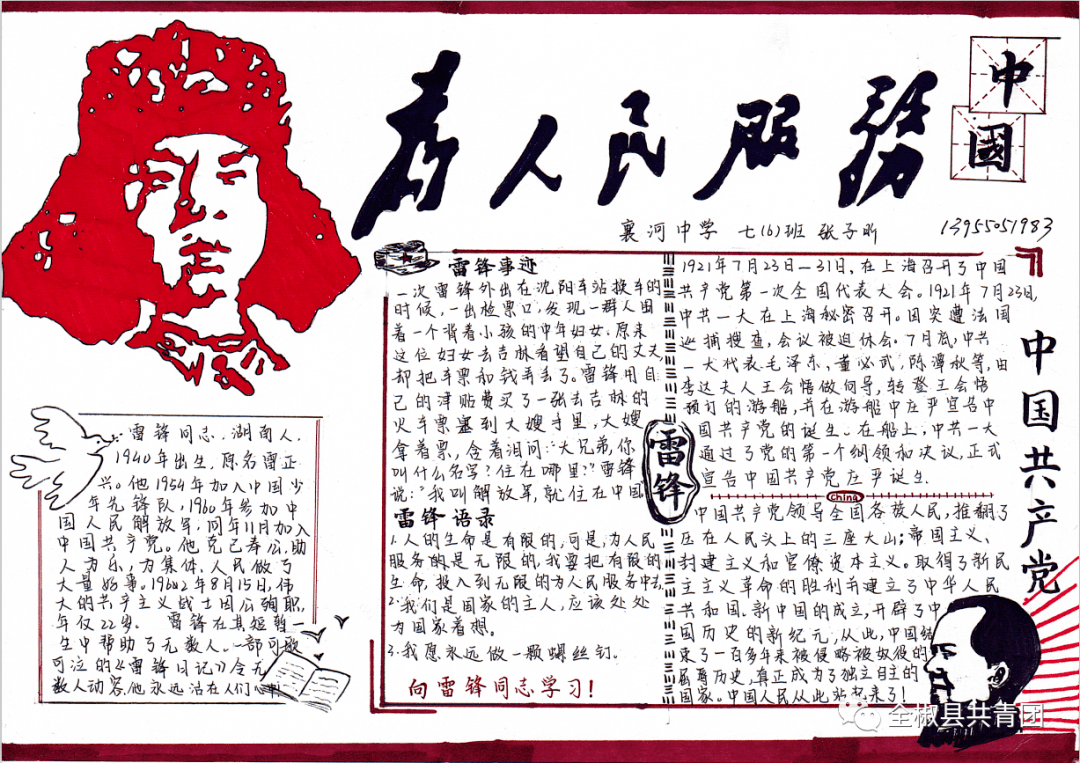 为人民服务
中
國
襄河中学 七(6)班 张子昕
13955051983
雷锋同志,湖南人,
1940年出生,原名雷正
兴。他1954年加入中国少
年先锋队,1960年参加中
国人民解放军,同年11月加入
中国共产党。他克己奉公,助
人为乐,为集体、人民做了
大量好事。1962年8月15日,伟
大的共产主义战士因公殉职,
年仅22岁。 雷锋在其短暂一
生中帮助了无数人。一部可歌
可泣的《雷锋日记》令无
数人动容,他永远活在人们心中
雷锋事迹
一次雷锋外出在沈阳车站换车的
时候,一出检票口,发现一群人围
着一个背着小孩的中年妇女,原来
这位妇女去吉林看望自己的丈夫
却把车票和钱弄丢了。雷锋用自
己的津贴费买了一张去吉林的
火车票塞到大嫂手里,大嫂
拿着票,含着泪问:“大兄弟,你
叫什么名字?住在哪里?”雷锋
说:“我叫解放军,就住在中国
雷锋语录
1.人的生命是有限的,可是,为人民
服务的是无限的,我要把有限的
生命,投入到无限的为人民服务中去
2.我们是国家的主人,应该处处
为国家着想。
3.我愿永远做一颗螺丝钉。
向雷锋同志学习!
雷锋
1921年7月23日—31日,在上海召开了中国
共产党第一次全国代表大会。1921年7月23日,
中共一大在上海秘密召开。因突遭法国
巡捕搜查,会议被迫休会。7月底,中共
一大代表毛泽东,董必武,陈潭秋等,由
李达夫人王会悟做向导,转登王会悟
预订的游船,并在游船中庄严宣告中
国共产党的诞生。在船上,中共一大
通过了党的第一个纲领和决议,正式
宣告中国共产党庄严诞生.
China
中国共产党领导全国各族人民,推翻了
压在人民头上的三座大山;帝国主义、
封建主义和官僚资本主义。取得了新民
主主义革命的胜利并建立了中华人民
共和国。新中国的成立,开辟了中
国历史的新纪元,从此,中国结
束了一百多年来被侵略被奴役的
屈辱历史,真正成为了独立自主的
国家。中国人民从此站起来了!
中国共产党
全椒县共青团